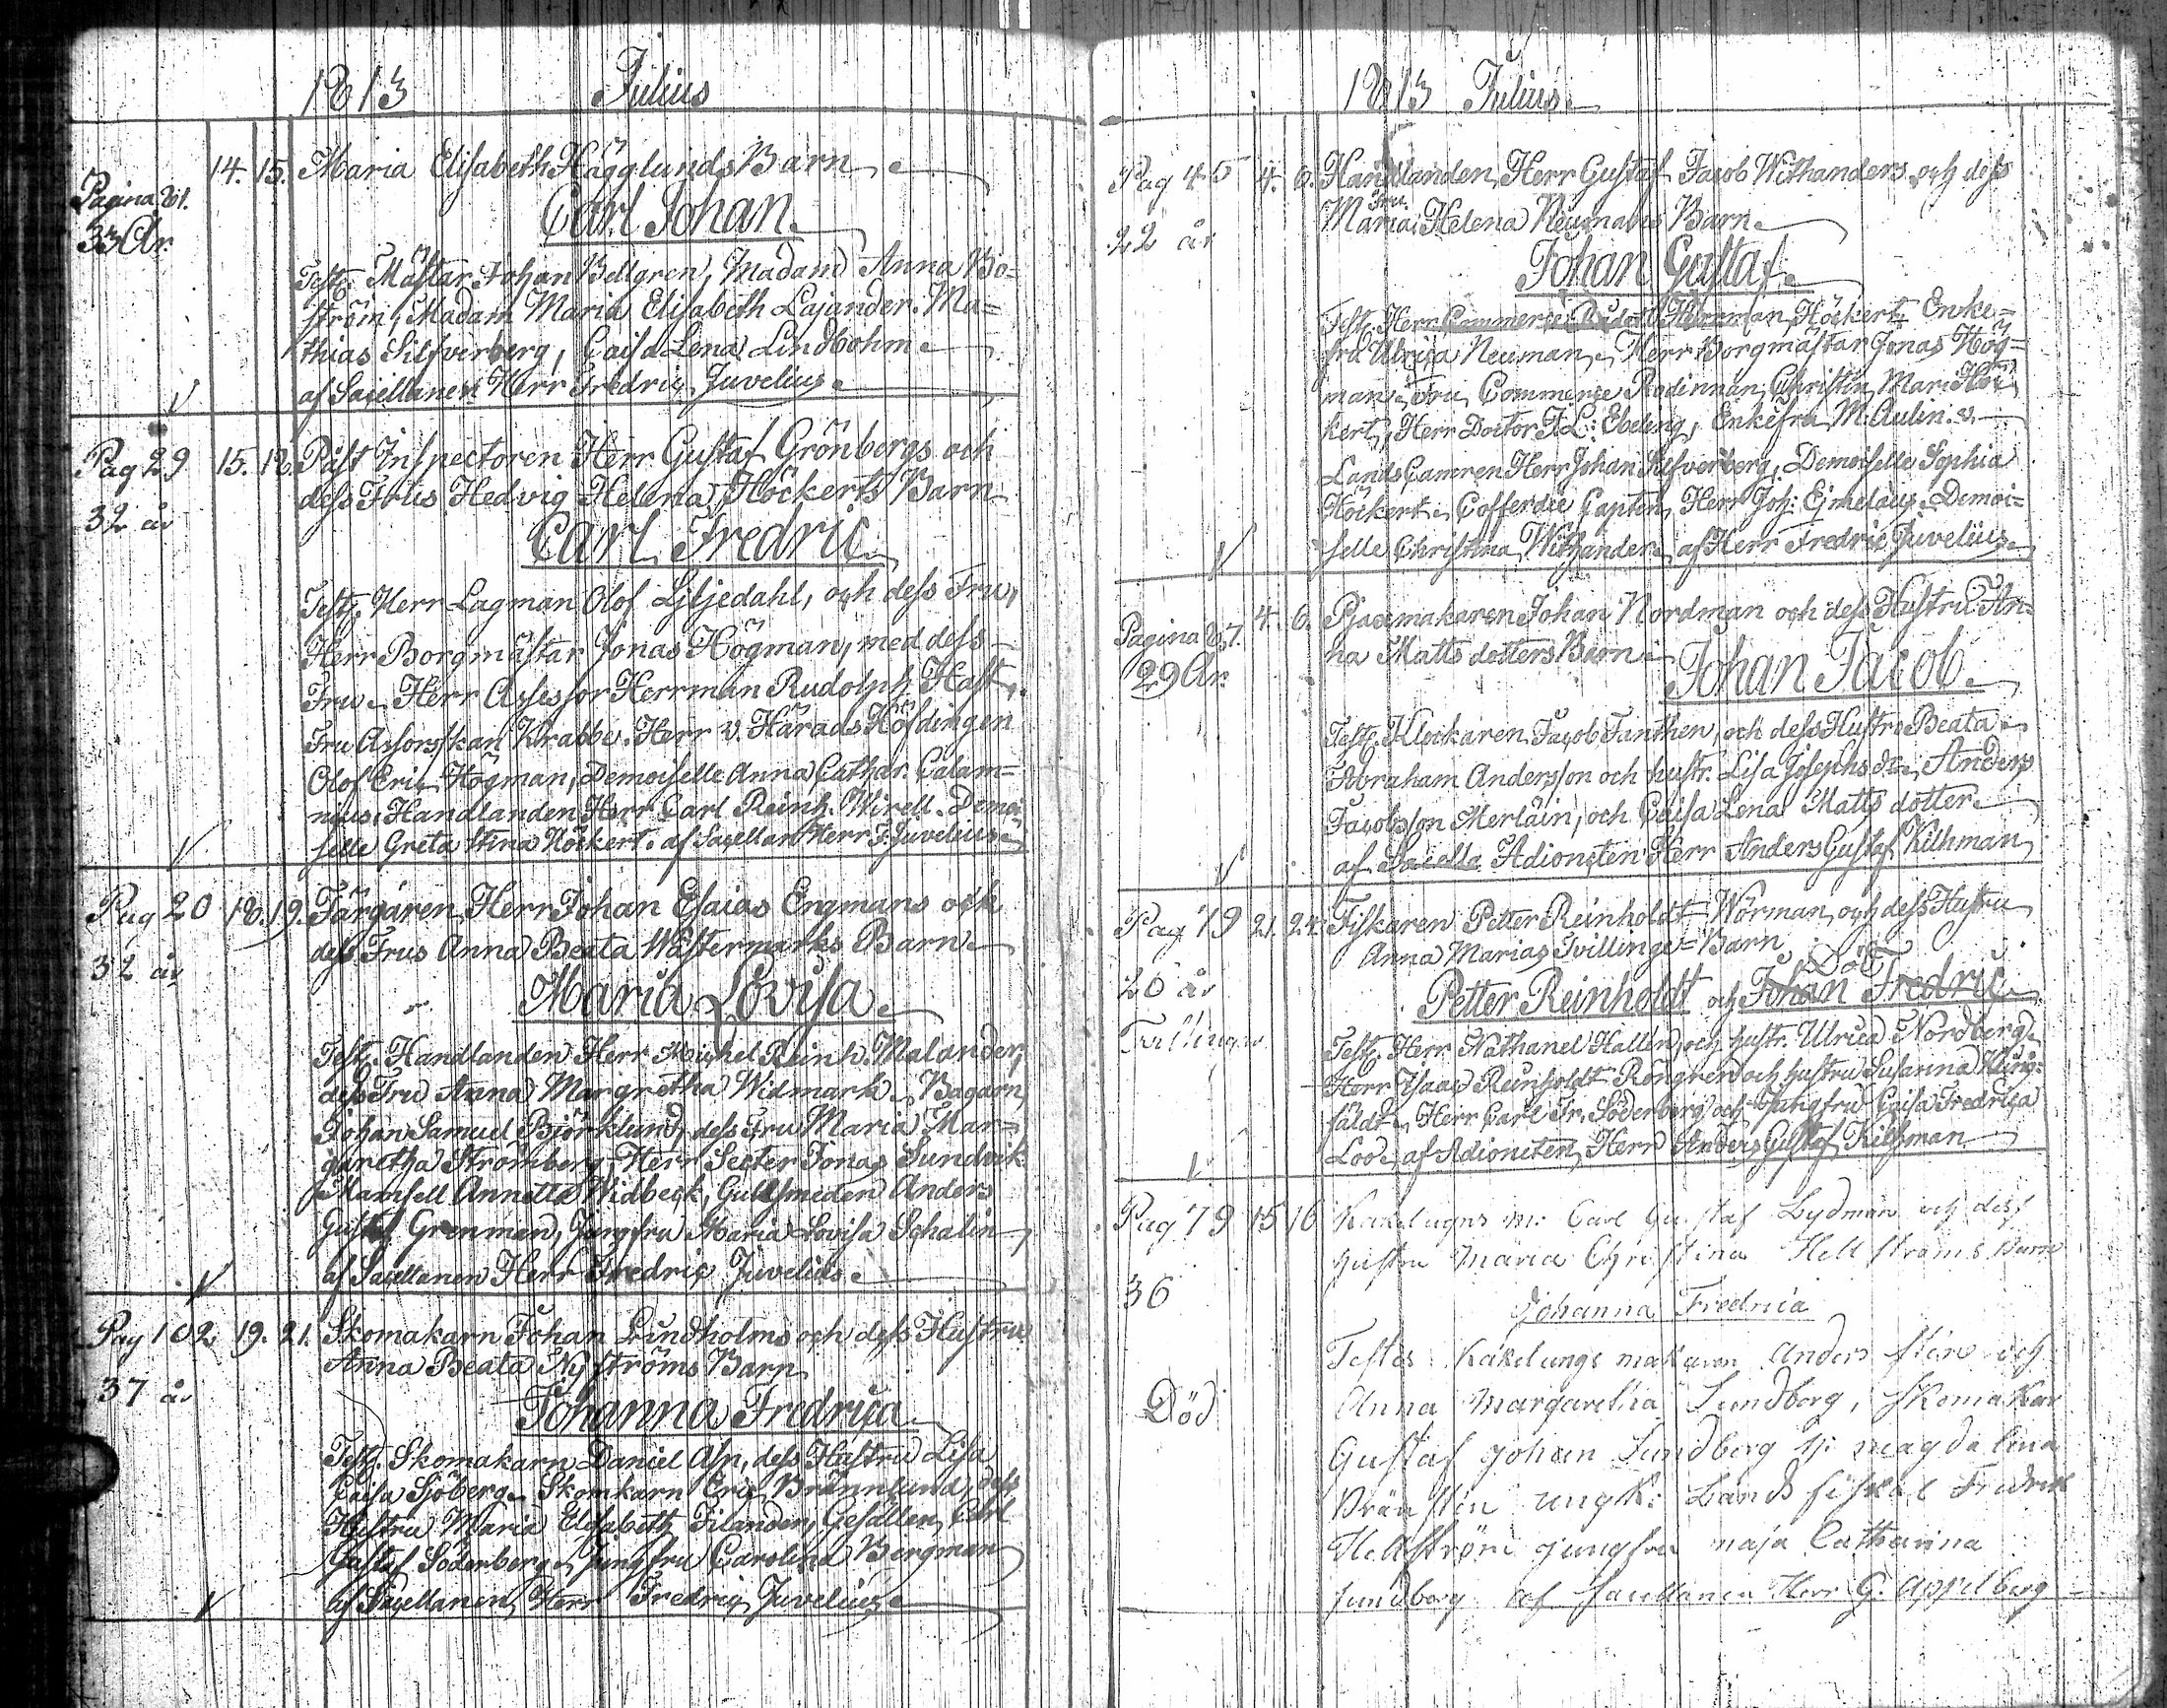 1813 Julius
Pagina 81.
33 År.
14. 15. Maria Elisabeth Hägglunds Barn
Carl Johan.
Test. Mästar Johan Bellgren, Madam Anna Bo=
ström, Madam Maria Elisabeth Lajander. Ma=
thias Silfverberg, Caisa Lena Lindbohm
af Sacellanen Herr Fredric Juvelius
Pag 29
32 år
15. 18. Post Inspectoren Herr Gustaf Grönbergs och
dess Frus Hedvig Helena Höckerts Barn
Carl Fredric
Test. Herr Lagman Olof Liljedahl, och dess Fru,
Herr Borgmästar Jonas Högman, med dess
Fru. Herr Assessor Herrman Rudolph Hast,
Fru Assorskan Krabbe. Herr v. Härads Höfdingen
Olof Eric Högman, Demoiselle Anna Cathar. Calam=
nius, Handlanden Herr Carl Reinh. Wirell. Demoi=
selle Greta Stina Höckert. af Sacellan Herr F. Juvelius
Pag 20
32 år
18. 19. Färgaren Herr Johan Esaias Engmans och
dess Frus Anna Beata Wästermarks Barn
Maria Lovisa
Test. Handlanden Herr Michel Reinh. Malander,
dess Fru Anna Margretha Widmark, Bagarn
Johan Samuel Björklund, dess Fru Maria Mar=
garetha Strömberg, Herr Secter Jonas Sundvik
Mamsell Annette Widbeck, Gullsmeden Anders
Gustaf Grenman, Jungfru Maria Lovisa Schalin
af Sacellanen Herr Fredric Juvelius
Pag 102
37 år
19. 21. Skomakarn Johan Lindholms och dess Hustru
Anna Beata Nyströms Barn
Johanna Fredrica
Test. Skomakarn Daniel Alm, dess Hustru Lisa
Caisa Sjöberg, Skomkarn Eric Brännlund, dess
Hustru Maria Elisabeth Filander, Gesällen Carl
Gustaf Söderberg, Jungfru Carolina Bergman
af Sacellanen Herr Fredric Juvelius
1813 Julius
Pag 45
22 år
4. 6. Handlanden Herr Gustaf Jacob Withanders och dess
Fru
Maria Helena Neumans Barn
Johan Gustaf
Test. Herr Commerce Rådet Herrman Höckert, Enke=
fru Ulrica Neuman, Herr Borgmästar Jonas Hög=
man, Fru Commerce Rådinnan Christin Mari Höc=
kert, Herr Doctor F. L. Ebeling, Enkefru M. Aulin. v.
Lands Camren Herr Johan Silfverberg, Demoiselle Sophia
Höckert, Cofferdie Capten Herr Joh: Ejmelæus, Demoi=
selle Christina Withander, af Herr Fredric Juvelius
Pagina 87.
29 År.
4. 6. Johan Nordman och dess Hustru An=
na Matts dotters Barn
Johan Jacob
Test. Klockaren Jacob Fanthen, och dess Hustru Beata
Abraham Andersson och hustr. Lisa Josephs dr. Anders
Jacobsson Merläin, och Caisa Lena Matts dotter
af Sacella Adioncten Herr Anders Gustaf Kilhman
Pag 79
20 år
Tvillingar
21. 24. Fiskaren Petter Reinholdt Wörman och dess Hustru
Anna Marias Tvillinge=Barn
Död
Petter Reinholdt och Johan Fredric
Test. Herr Nathanel Hallén, och hustr. Ulrica Nordberg
Herr Isaac Reinholdt Röngren och hustru Susanna Kling=
fäldt, Herr Carl Fr. Söderberg och Jungfru Caisa Fredrica
Loo, af Adioncten Herr Anders Gustaf Kilhman
Pag 79
36
Död
15 16 Kakelugns m: Carl Gustaf Lydman och dess
hustru Maria Christina Hellströms Barn
Johanna Fredrica
Testes Kakelungs makaren Anders sten och
Anna Margaretha Sundberg, Skomakar
Gustaf Johan Sundberg h: Magdalena
ungk: Landsfiskal Fredrik
Hellström jungfru maja Catharina
Sundberg af Sacellanen Herr G. Appelberg